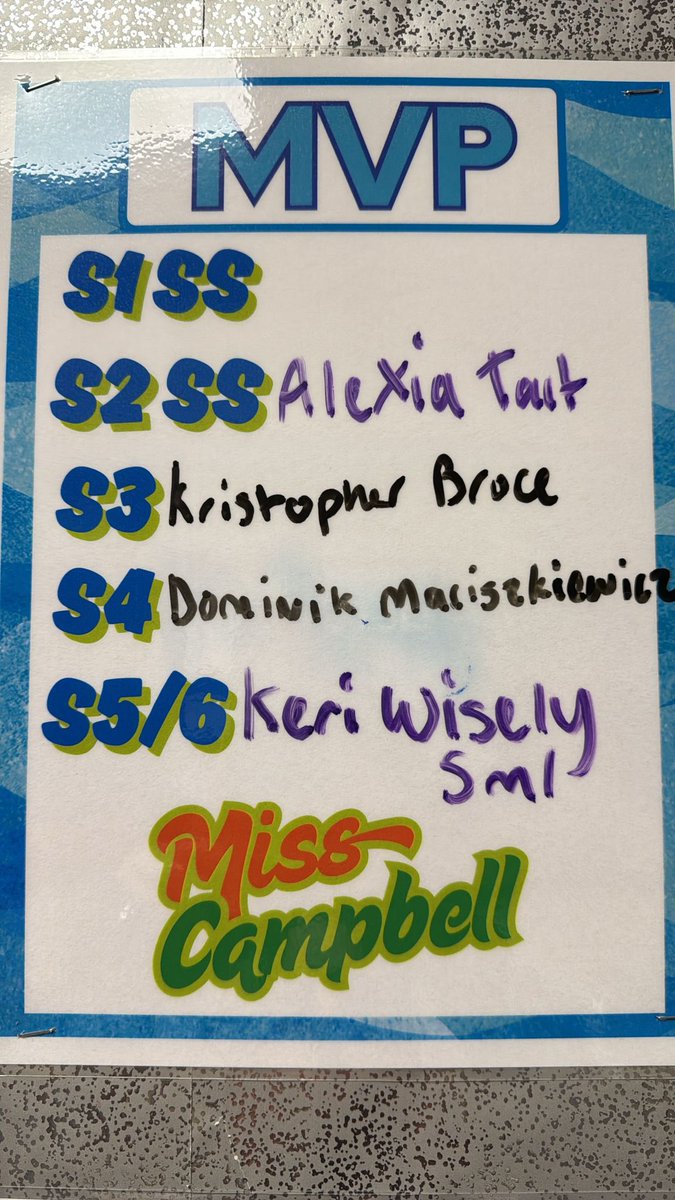 MVP
S1 SS
S2 SS Alexia Tait
S3 Kristopher Broce
S4 Dominik Maciszkiewicz
S5/6 Keri Wisely
5m1
Miss
Campbell